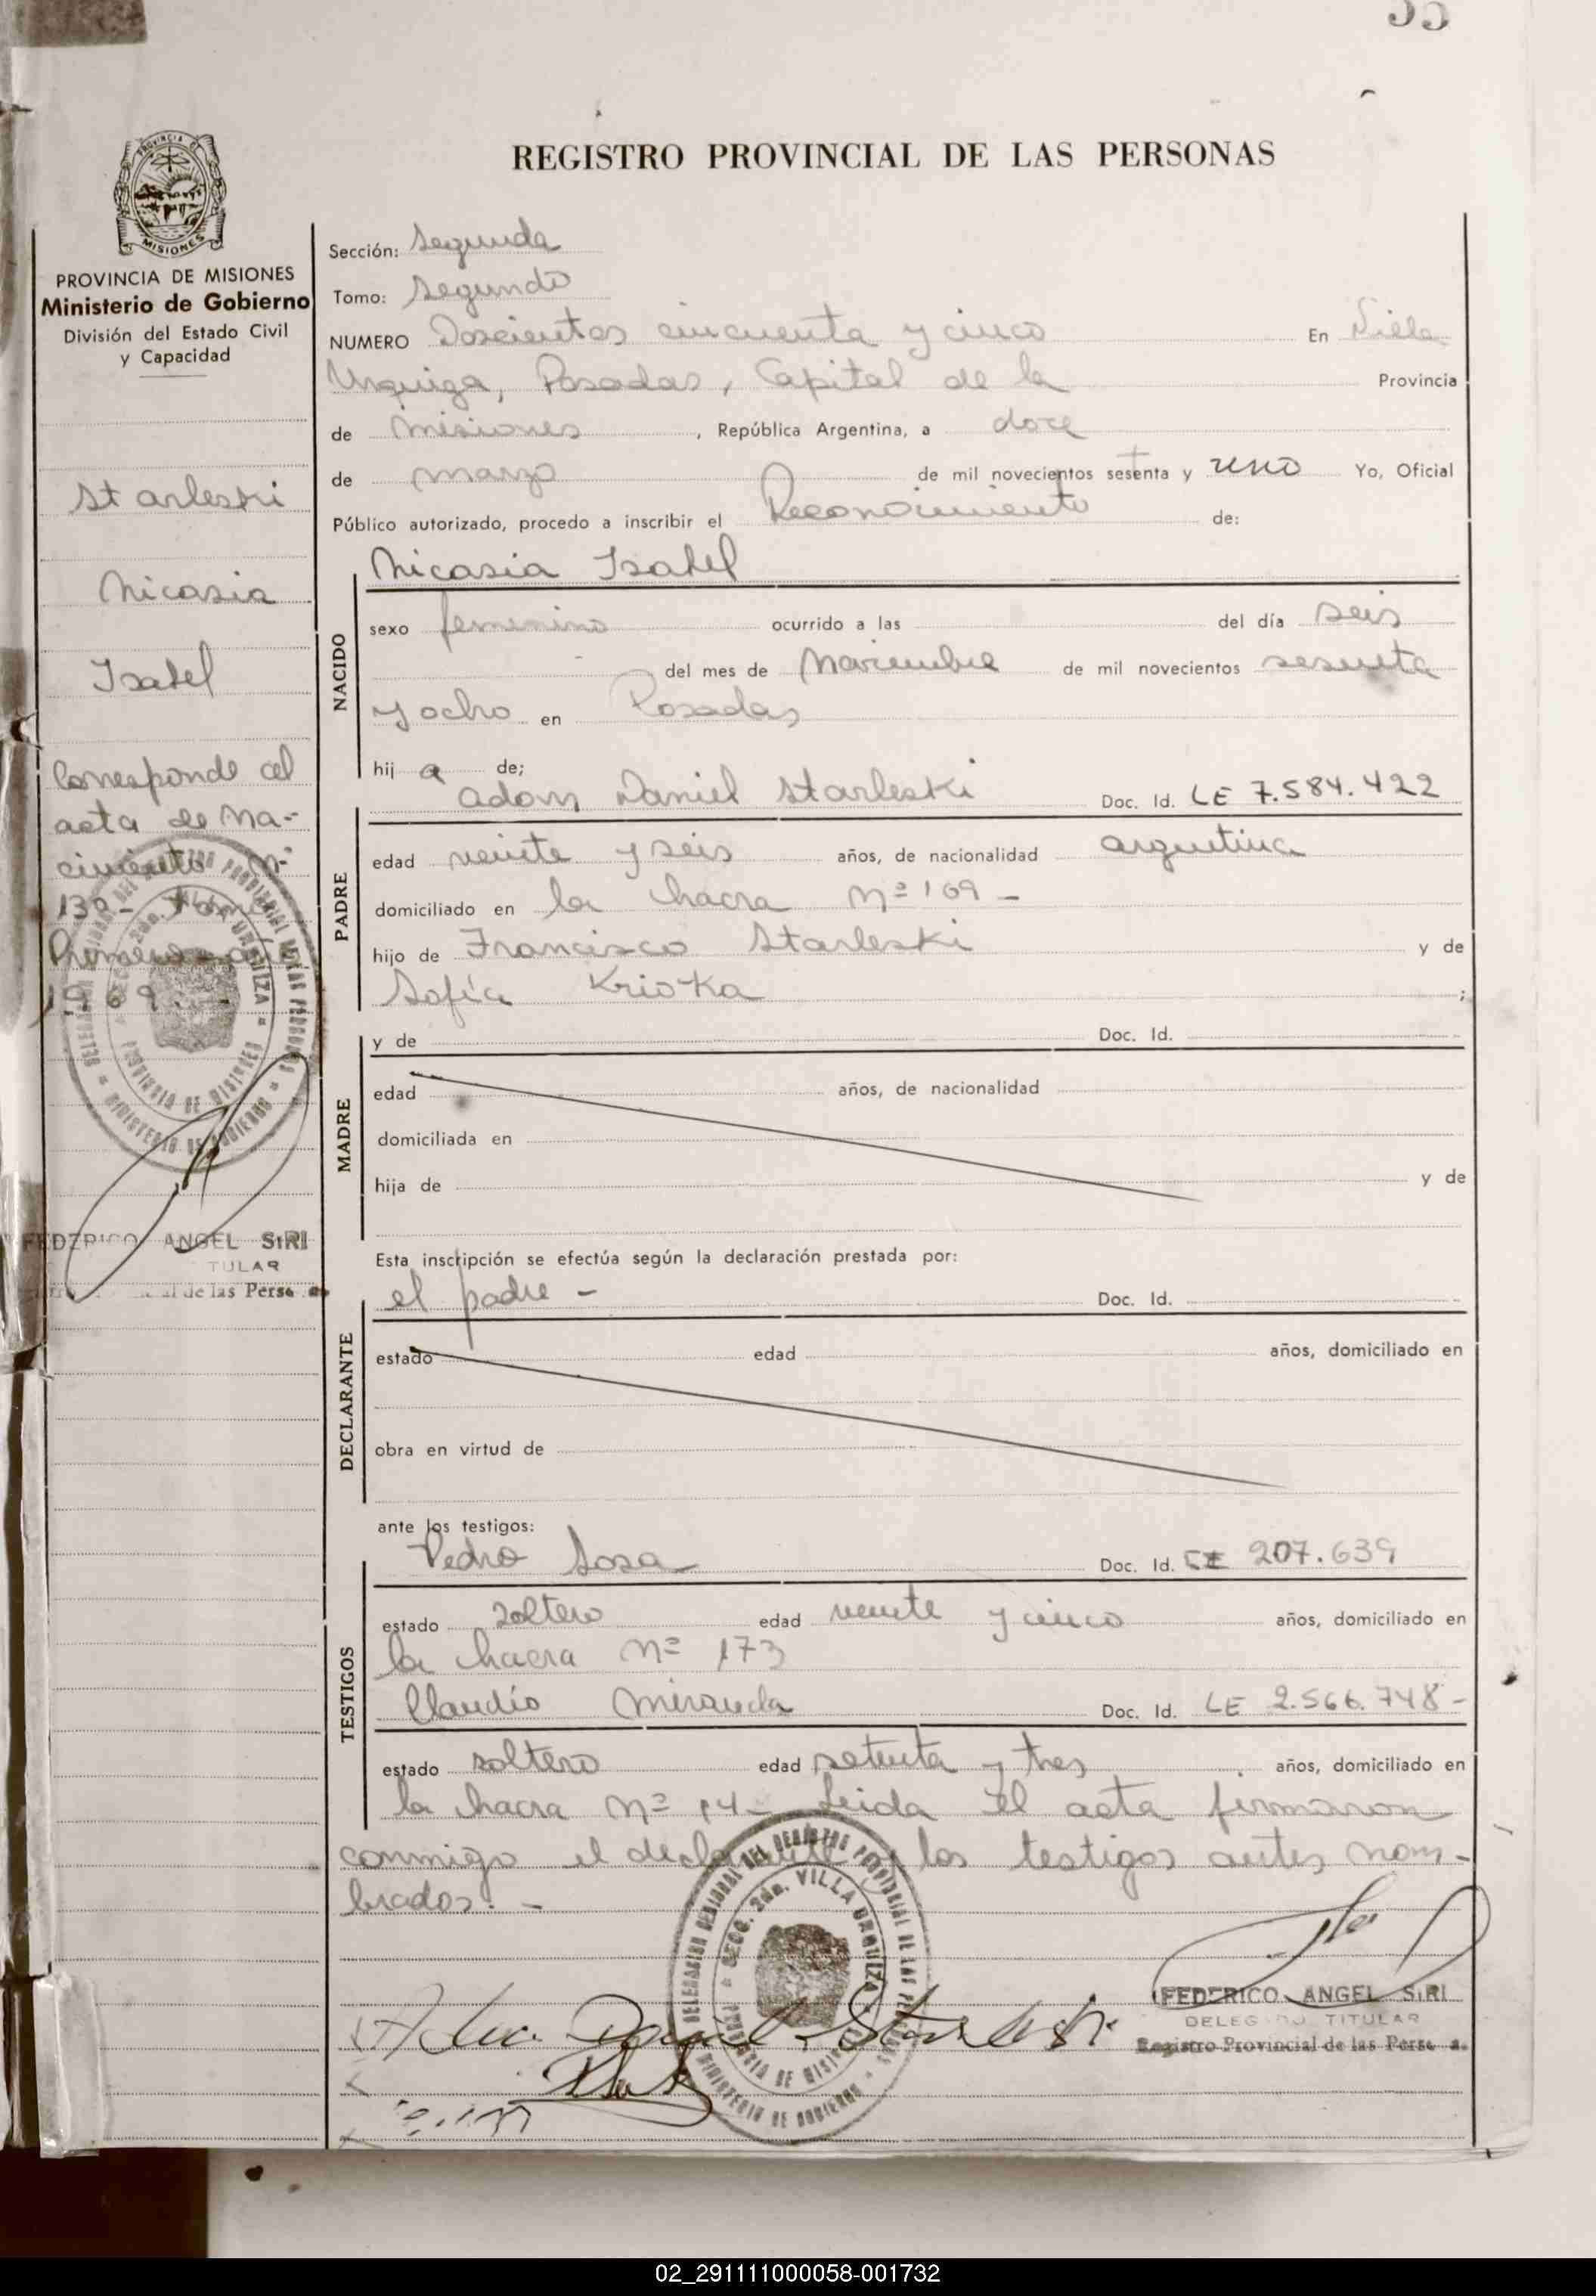 55
REGISTRO PROVINCIAL DE LAS PERSONAS
PROVINCIA DE MISIONES
Ministerio de Gobierno
División del Estado Civil
y Capacidad
Starleski
Nicasia
Isabel
Corresponde al
acta de Na-
cimiento Nº
130 - Tomo
Primero - año
1969.-
FEDERICO ANGEL SIRI
TULAR
al de las Perso
Sección: Segunda
Tomo: Segundo
NUMERO Doscientos cincuenta y cinco En Villa
Urquiza, Posadas, Capital de la Provincia
de Misiones, República Argentina, a doce
de marzo de mil novecientos sesenta y uno Yo, Oficial
Público autorizado, procedo a inscribir el Reconocimiento de:
Nicasia Isabel
NACIDO
sexo femenino ocurrido a las del día seis
del mes de Noviembre de mil novecientos sesenta
y ocho en Posadas
hij a de;
Adam Daniel Starleski Doc. Id. LE 7.584.422
PADRE
edad veinte y seis años, de nacionalidad argentina
domiciliado en la chacra Nº 109 -
hijo de Francisco Starleski y de
Sofía Krioka ;
y de Doc. Id.
MADRE
edad años, de nacionalidad
domiciliada en
hija de y de
Esta inscripción se efectúa según la declaración prestada por:
el padre - Doc. Id.
DECLARANTE
estado edad años, domiciliado en
obra en virtud de
ante los testigos:
Pedro Sosa Doc. Id. CI 207.639
TESTIGOS
estado soltero edad veinte y cinco años, domiciliado en
la chacra Nº 173
Claudio Miranda Doc. Id. LE 2.566.748 -
estado soltero edad setenta y tres años, domiciliado en
la chacra Nº 14 - Leida el acta firmaron
conmigo el declarante y los testigos antes nom-
brados. -
DELEGACION REGIONAL DEL REGISTRO PROVINCIAL DE LAS PERSONAS
SECC. 2da. VILLA URQUIZA
PROVINCIA DE MISIONES
MINISTERIO DE GOBIERNO
Daniel Starleski
FEDERICO ANGEL SIRI
DELEGADO TITULAR
Registro Provincial de las Perso
02_291111000058-001732